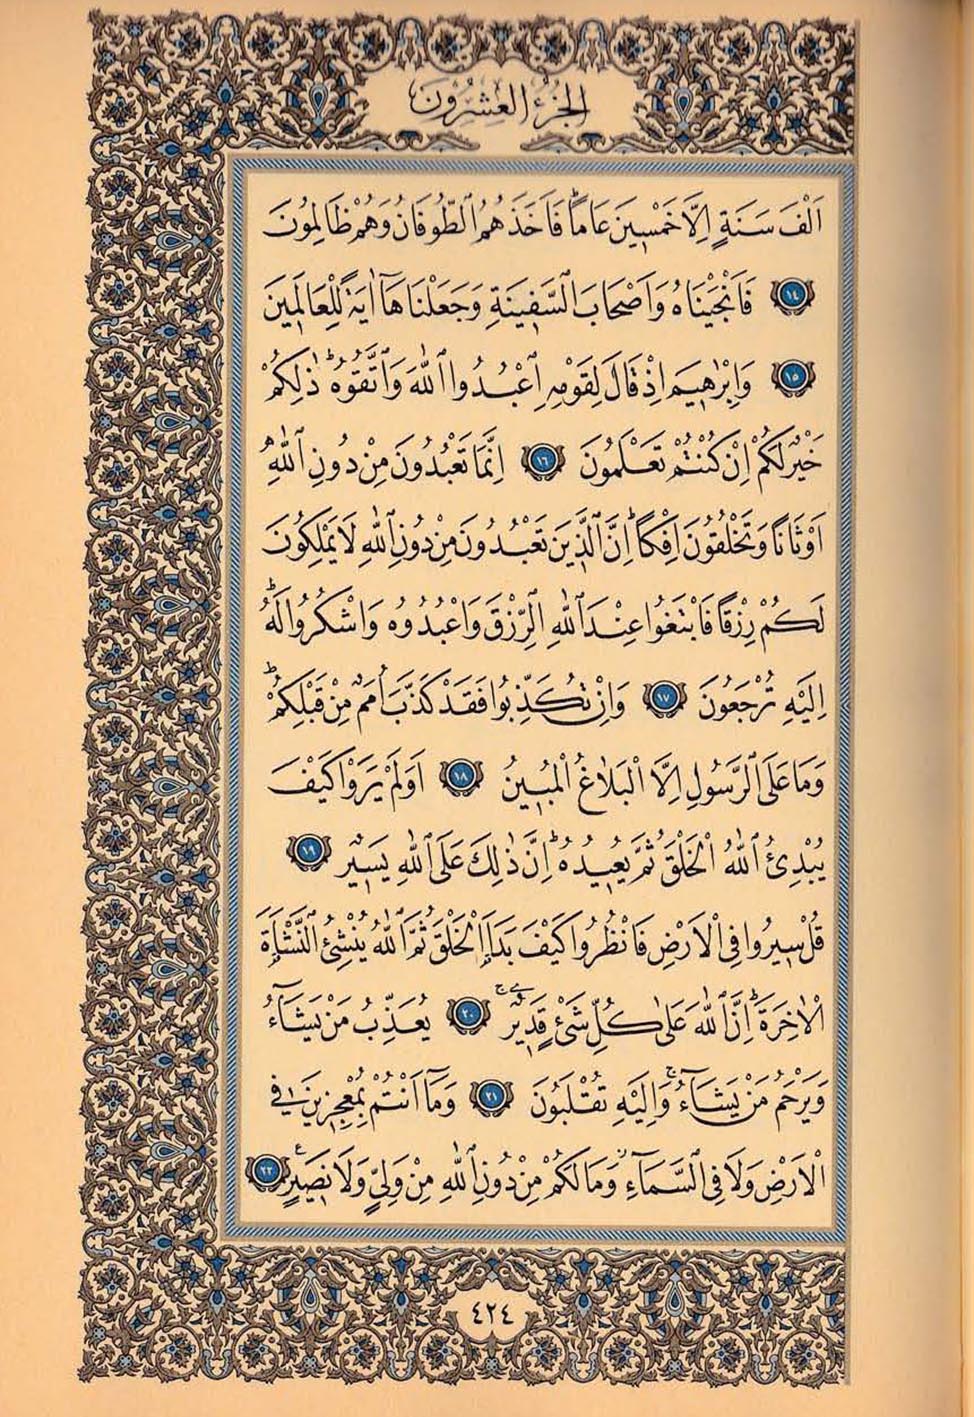 الجزء العشرون
اَلْفَ سَنَةٍ اِلَّا خَمْسِينَ عَامًاۜ فَاَخَذَهُمُ الطُّوفَانُ وَهُمْ ظَالِمُونَ
﴿١٤﴾ فَاَنْجَيْنَاهُ وَاَصْحَابَ السَّفِينَةِ وَجَعَلْنَاهَٓا اٰيَةً لِلْعَالَمِينَ
﴿١٥﴾ وَاِبْرٰهِيمَ اِذْ قَالَ لِقَوْمِهِ اعْبُدُوا اللّٰهَ وَاتَّقُوهُۜ ذٰلِكُمْ
خَيْرٌ لَكُمْ اِنْ كُنْتُمْ تَعْلَمُونَ ﴿١٦﴾ اِنَّمَا تَعْبُدُونَ مِنْ دُونِ اللّٰهِ
اَوْثَانًا وَتَخْلُقُونَ اِفْكًاۜ اِنَّ الَّذِينَ تَعْبُدُونَ مِنْ دُونِ اللّٰهِ لَا يَمْلِكُونَ
لَكُمْ رِزْقًا فَابْتَغُوا عِنْدَ اللّٰهِ الرِّزْقَ وَاعْبُدُوهُ وَاشْكُرُوا لَهُۜ
اِلَيْهِ تُرْجَعُونَ ﴿١٧﴾ وَاِنْ تُكَذِّبُوا فَقَدْ كَذَّبَ اُمَمٌ مِنْ قَبْلِكُمْۜ
وَمَا عَلَى الرَّسُولِ اِلَّا الْبَلَاغُ الْمُبِينُ ﴿١٨﴾ اَوَلَمْ يَرَوْا كَيْفَ
يُبْدِئُ اللّٰهُ الْخَلْقَ ثُمَّ يُعِيدُهُۜ اِنَّ ذٰلِكَ عَلَى اللّٰهِ يَسِيرٌ ﴿١٩﴾
قُلْ سِيرُوا فِي الْاَرْضِ فَانْظُرُوا كَيْفَ بَدَاَ الْخَلْقَ ثُمَّ اللّٰهُ يُنْشِئُ النَّشْاَةَ
الْاٰخِرَةَۜ اِنَّ اللّٰهَ عَلٰى كُلِّ شَيْءٍ قَدِيرٌۚ ﴿٢٠﴾ يُعَذِّبُ مَنْ يَشَٓاءُ
وَيَرْحَمُ مَنْ يَشَٓاءُۚ وَاِلَيْهِ تُقْلَبُونَ ﴿٢١﴾ وَمَٓا اَنْتُمْ بِمُعْجِزِينَ فِي
الْاَرْضِ وَلَا فِي السَّمَٓاءِۘ وَمَا لَكُمْ مِنْ دُونِ اللّٰهِ مِنْ وَلِيٍّ وَلَا نَصِيرٍ ﴿٢٢﴾
٤٢٤